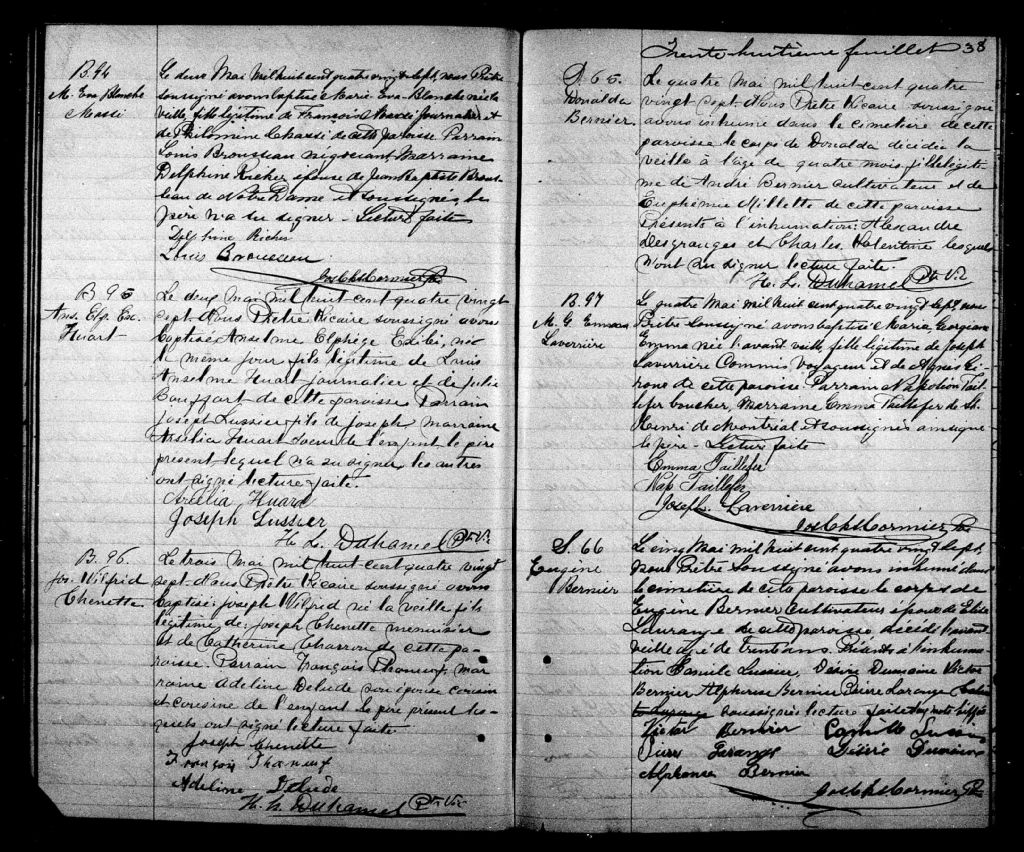 B. 94
M. Eva Blanche
Massé
Le deux Mai Mil huit cent quatre vingt sept, nous Prêtre
soussigné avons baptisé Marie Eva Blanche née la
veille fille légitime de François Massé journalier et
de Philomène Chaussé de cette paroisse Parrain
Louis Brousseau négociant Marraine
Delphine Richer épouse de Jean Bapte Brous-
seau de Notre Dame et soussignés, le
père n'a su signer - Lecture faite
Delphine Richer
Louis Brousseau
Jos Chs Cormier Ptre
B 95
Ans. Elp. Eu.
Huart
Le deux Mai Mil huit cent quatre vingt
sept Nous Prêtre Vicaire soussigné avons
baptisé Anselme Elphège né
le même jour fils légitime de Louis
Anselme Huart journalier et de Julie
Bouffart de cette paroisse Parrain
Joseph Lussier fils de Joseph marraine
Huart soeur de l'enfant le père
présent lequel n'a su signer les autres
ont signé lecture faite.
Huard
Joseph Lussier
H. L. Duhamel Ptr. Vi.
B. 96.
Jos. Wilfrid
Chenette
Le trois Mai mil huit cent quatre vingt
sept Nous Prêtre Vicaire soussigné avons
baptisé Joseph Wilfrid né la veille fils
légitime de Joseph Chenette menuisier
et de Catherine Charron de cette pa-
roisse. Parrain François Phaneuf, mar
raine Adeline Delude son épouse cousin
et cousine de l'enfant le père présent les-
quels ont signé lecture faite
Joseph Chenette
François Phaneuf
Adeline Delude
H. L. Duhamel Ptr. Vic
Trente-huitième feuillet 38
S. 65.
Donalda
Bernier.
Le quatre Mai mil huit cent quatre
vingt sept Nous Prêtre Vicaire soussigné
avons inhumé dans le cimetière de cette
paroisse le corps de Donalda décédée la
veille à l'âge de quatre mois fille légiti
me de André Bernier cultivateur et de
Euphémie Millette de cette paroisse
Présents à l'inhumation: Alexandre
Desgranges et Charles Valentine lesquels
n'ont su signer lecture faite.
H. L. Duhamel Ptr. Vi.
B. 97
M. G. Emma
Laverrière
Le quatre Mai mil huit cent quatre vingt sept, nous
Prêtre soussigné avons baptisé Marie Georgiana
Emma née l'avant veille, fille légitime de Joseph
Laverrière Commis Voyageur et de Agnès
de cette paroisse. Parrain Napoléon Tail-
lefer boucher, Marraine Emma Taillefer de St.
Henri de Montréal et soussignés ainsi que
le père - Lecture faite
Emma Taillefer
Nap Taillefer
Joseph Laverrière
Jos Chs Cormier Ptre
S. 66
Eugène
Bernier
Le cinq Mai mil huit cent quatre vingt sept,
nous Prêtre soussigné avons inhumé dans
le cimetière de cette paroisse le corps de
Eugène Bernier Cultivateur époux de
Larange de cette paroisse, décédé l'avant
veille agé de trente ans. Présents à l'inhuma-
tion Camille Lussier, Désiré Dumaine Victor
Bernier Alphonse Bernier Pierre Larange
soussignés lecture faite
Victor Bernier Camille Lussier
Pierre Larange Désiré Dumaine
Alphonse Bernier
Jos Chs Cormier Ptre